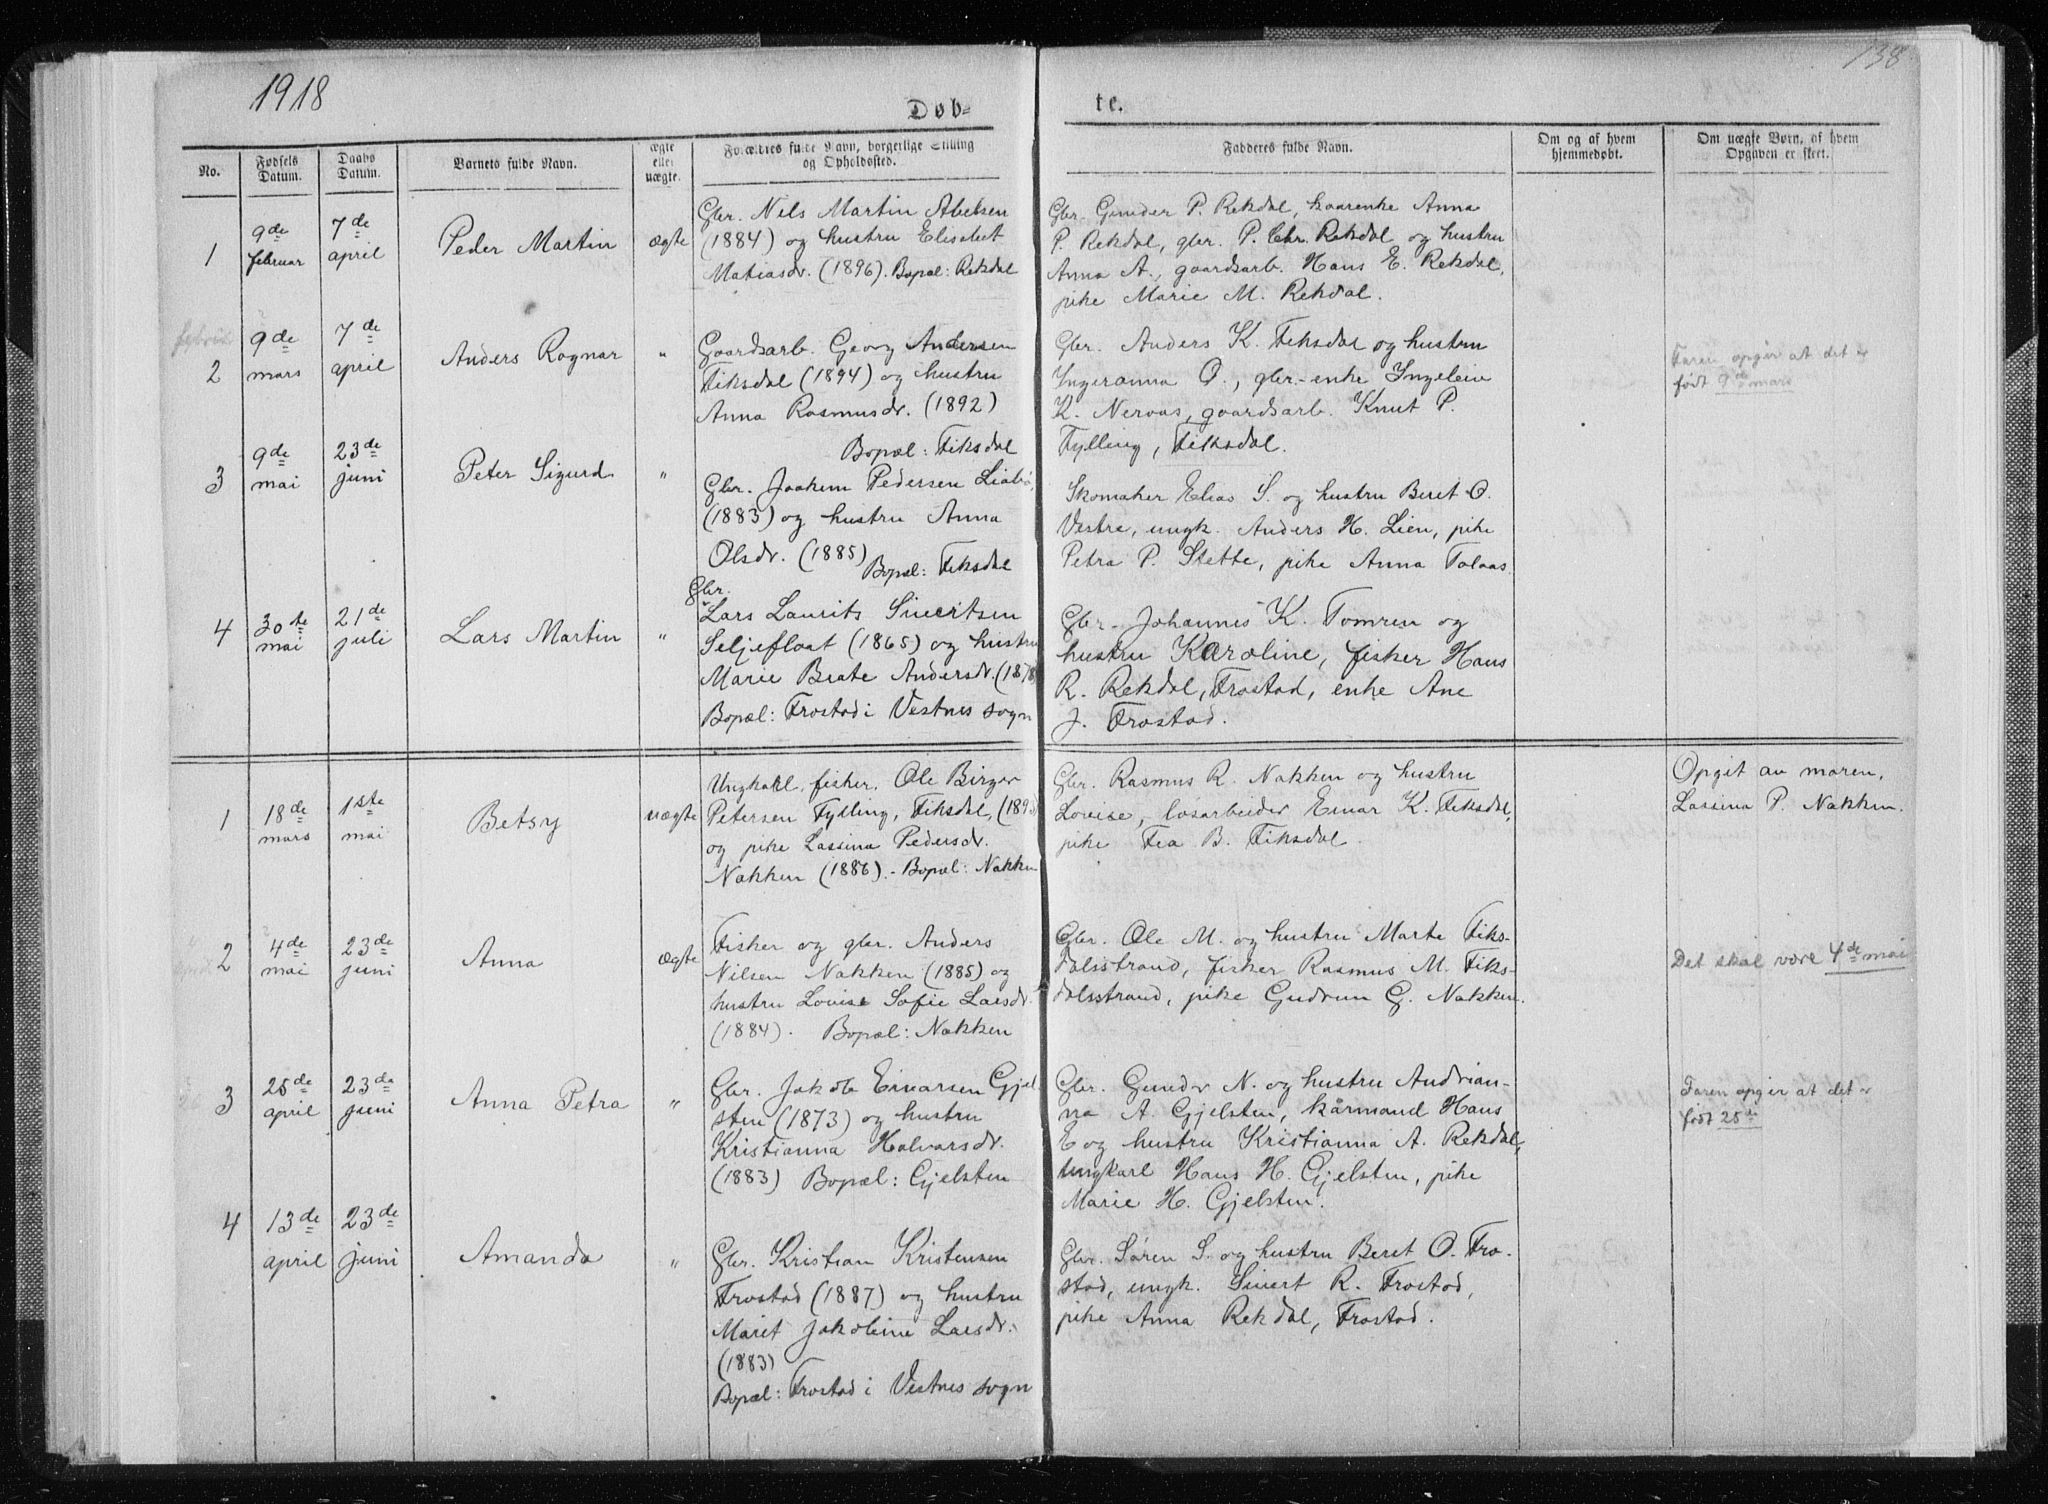 1918
138
Døb-
te.
No.
Fødsels Datum.
Daabs Datum.
Barnets fulde Navn.
ægte eller uægte.
Forældres fulde Navn, borgerlige Stilling og Opholdssted.
Fadderes fulde Navn.
Om og af hvem hjemmedøbt.
Om uægte Børn, af hvem Opgaven er skeet.
1
9de februar
7de april
Peder Martin
ægte
Gbr. Nils Martin Abelsen
(1884) og hustru Elisabet
Matiasdr. (1896). Bopæl: Rekdal
Gbr. Gunder P. Rekdal, kaarenke Anna
P. Rekdal, gbr. P. Chr. Rekdal og hustru
Anna A., gaardsarb. Hans E. Rekdal,
pike Marie M. Rekdal.
2
9de mars
7de april
Anders Ragnar
"
Gaardsarb. Georg Andersen
Fiksdal (1894) og hustru
Anna Rasmusdr. (1892)
Bopæl: Fiksdal
Gbr. Anders K. Fiksdal og hustru
Ingeranna O., gbr.-enke Ingeleiv
K. Nervas, gaardsarb. Knut P.
Fylling, Fiksdal.
Faren opgir at det er
født 9de mars
3
9de mai
23de juni
Peter Sigurd
"
Gbr. Joakim Pedersen Liabø,
(1883) og hustru Anna
Olsdr. (1885)
Bopæl: Fiksdal
Skomaker Elias S. og hustru Beret O.
Vestre, ungk. Anders H. Lien, pike
Petra P. Slette, pike Anna Talaas
4
30te mai
21de juli
Lars Martin
"
Gbr.
Lars Laurits Sivertsen
Seljeflaat (1865) og hustru
Marie Beate Andersdr. (1878
Bopæl: Frostad i Vestnes sogn
Gbr. Johannes K. Tomren og
hustru Karoline, fisker Hans
R. Rekdal, Frostad, enke Ane
J. Frostad.
1
18de mars
1ste mai
Betsy
uægte
Ungkarl, fisker, Ole Birger
Petersen Fylling, Fiksdal,
og pike Lassina Pedersdr.
Nakken (1886). - Bopæl: Nakken
Gbr. Rasmus R. Nakken og hustru
Lovise, løsarbeider Einar K. Fiksdal,
pike Fea B. Fiksdal.
Opgit av moren,
Lassina P. Nakken.
2
4de mai
23de juni
Anna
ægte
Fisker og gbr. Anders
Nilsen Nakken (1885) og
hustru Lovise Sofie Larsdr.
(1884). Bopæl: Nakken
Gbr. Ole M. og hustru Marte Fiks-
dalsstrand, fisker Rasmus M. Fiks-
dalsstrand, pike Gudrun G. Nakken.
Det skal være 4de mai
3
25de april
23de juni
Anna Petra
"
Gbr. Jakob Einarsen Gjel-
sten (1873) og hustru
Kristianna Halvarsdr.
(1883) Bopæl: Gjelsten
Gbr. Gunder N. og hustru Andrian-
na A. Gjelsten, kårmand Hans
E og hustru Kristianna A. Rekdal,
ungkarl Hans H. Gjelsten, pike
Marie H. Gjelsten.
Faren opgir at det er
født 25de
4
13de april
23de juni
Amanda
"
Gbr. Kristian Kristensen
Frostad (1887) og hustru
Marit Jakobine Larsdr.
(1883)
Bopæl: Frostad i Vestnes sogn
Gbr. Søren S. og hustru Beret O. Fro-
stad, ungk. Sivert R. Frostad,
pike Anna Rekdal, Frostad.